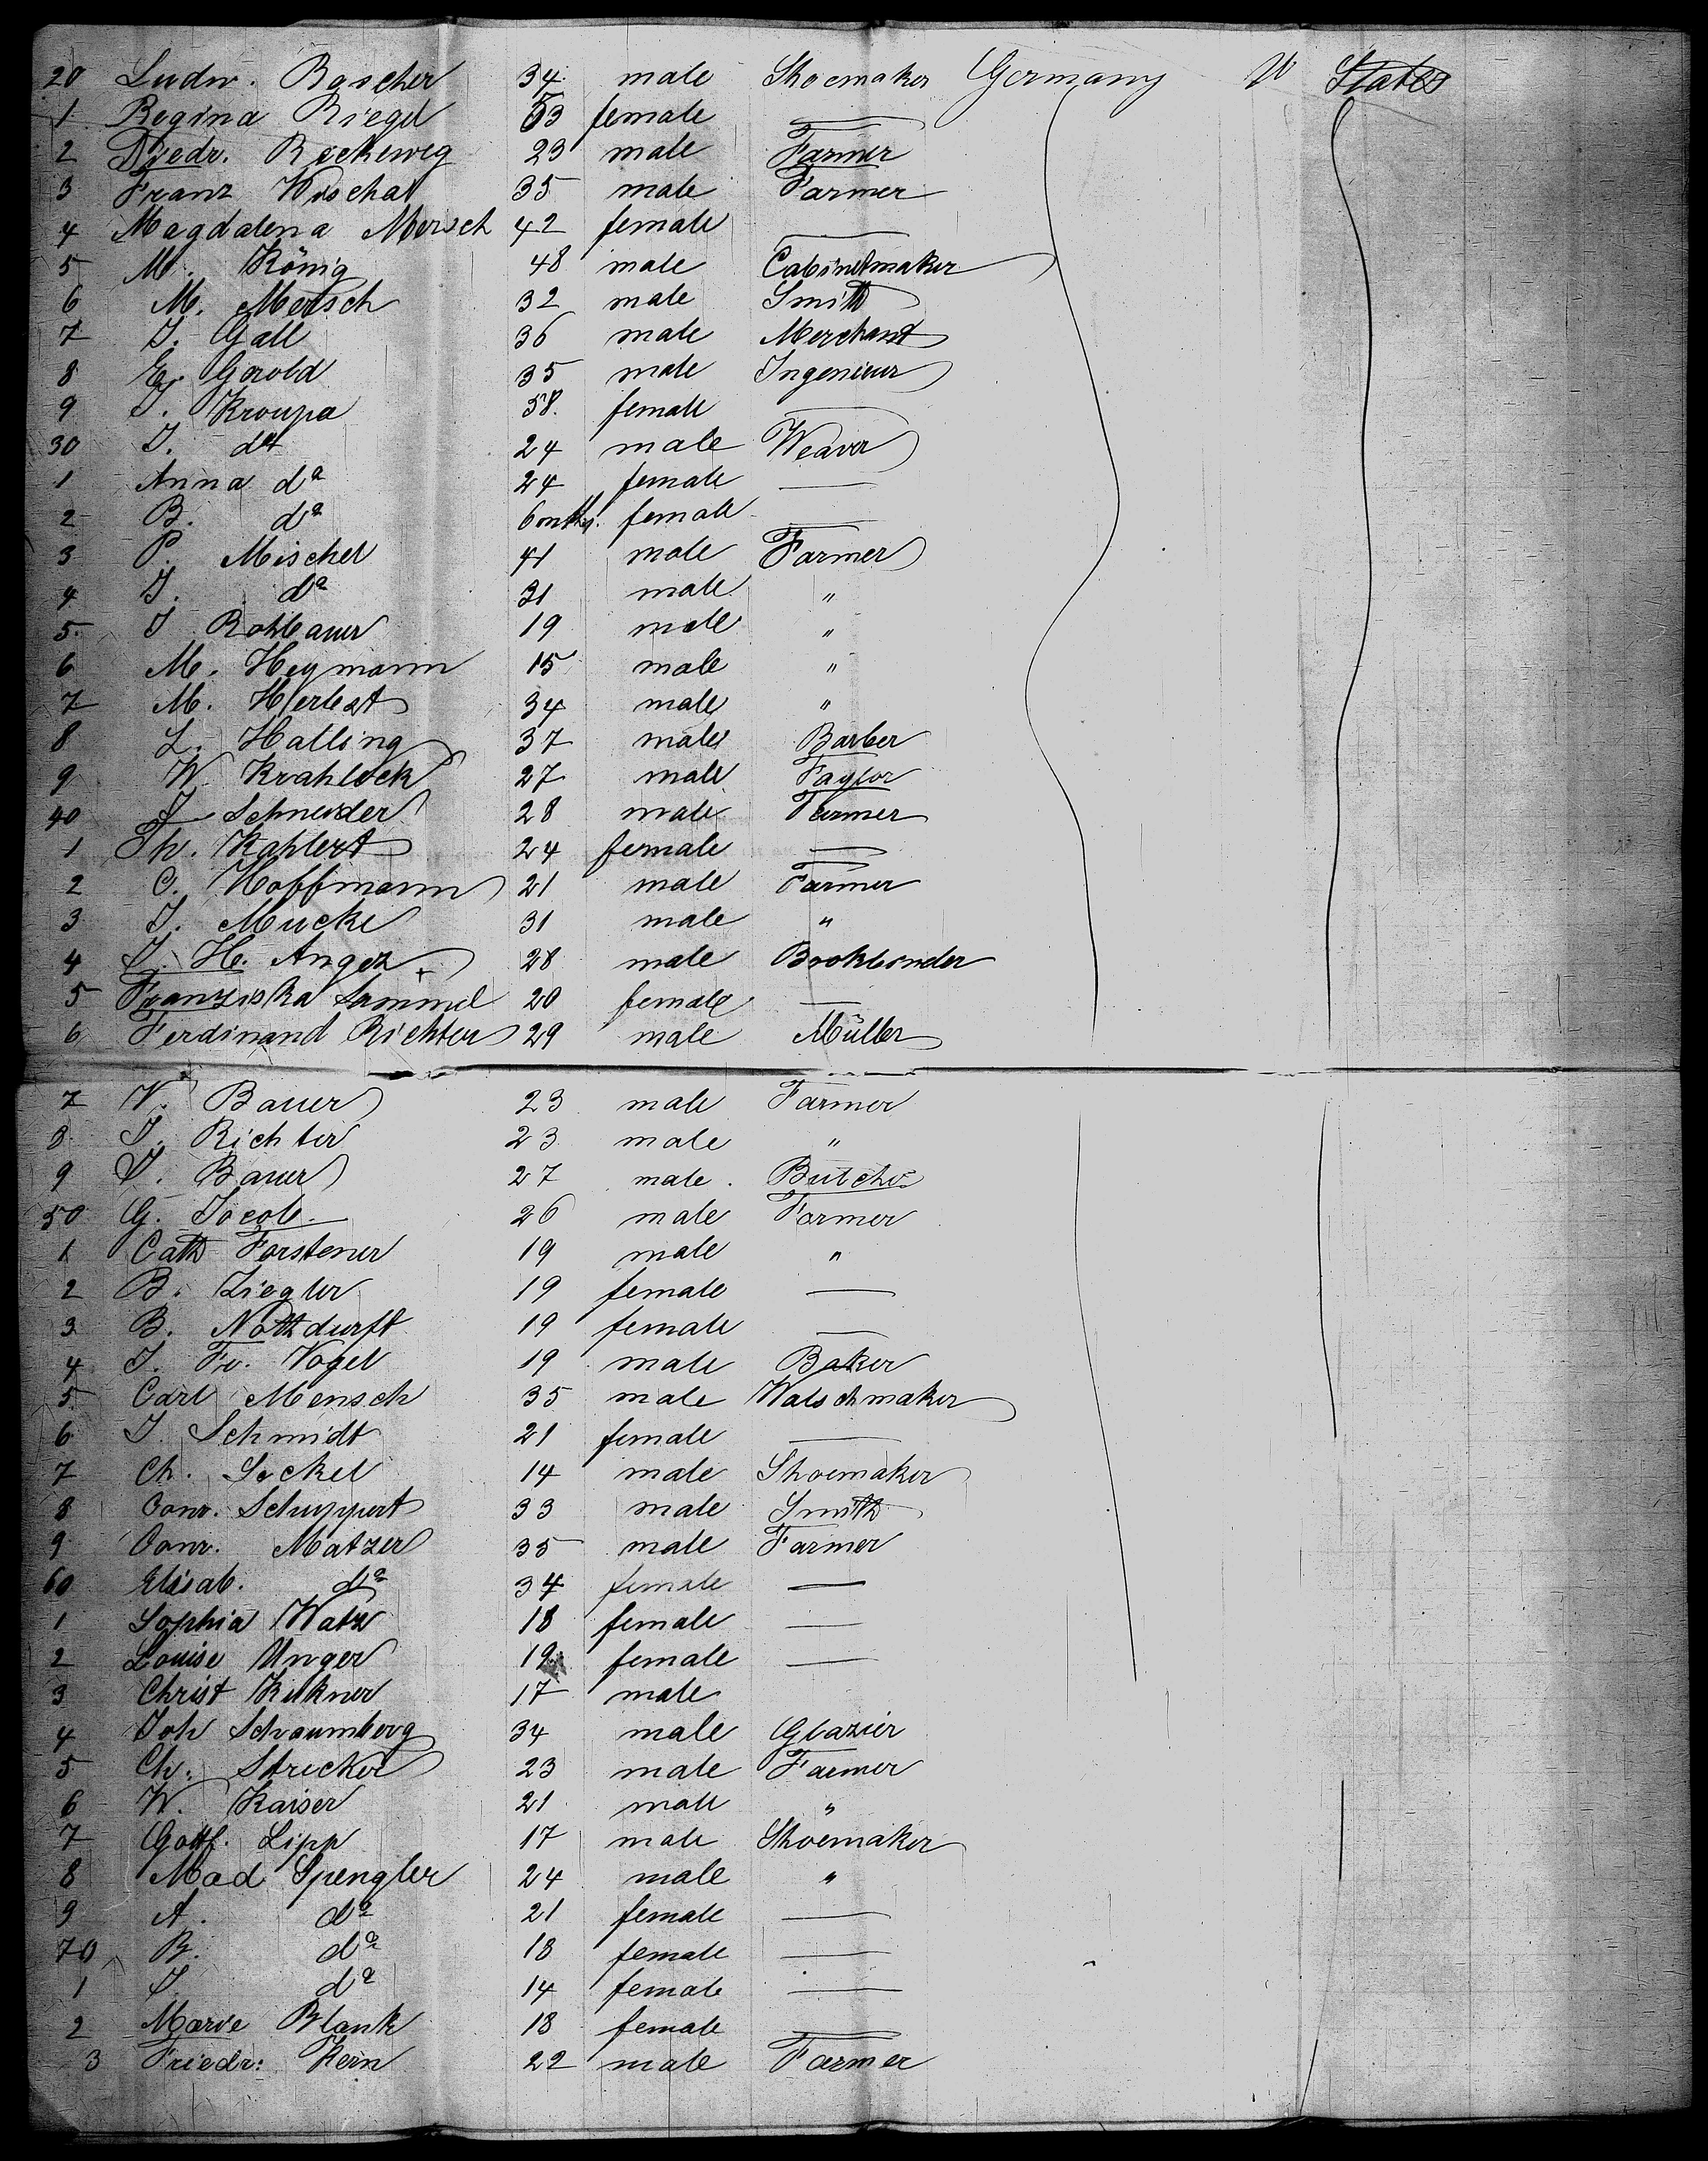 20 Ludw. Bascher 34 male Shoemaker Germany U States
1 Regina Riegel 53 female —
2 Diedr. Rockeweg 23 male Farmer
3 Franz Wischal 35 male Farmer
4 Magdalena Mersch 42 female —
5 M. König 48 male Cabinetmaker
6 M. Mersch 32 male Smith
7 J. Gall 36 male Merchant
8 E. Gerold 35 male Ingenieur
9 J. Kroupa 58. female —
30 J. do 24 male Weaver
1 Anna do 24 female —
2 B. do 6 mths. female —
3 P. Mischel 41 male Farmer
4 J. do 31 male "
5 J Rohbauer 19 male "
6 M. Heymann 15 male "
7 M. Herbst 34 male "
8 L. Halling 37 male Barber
9 W. Krahlock 27 male Taylor
40 J Schneider 28 male Farmer
1 Th. Kahlert 24 female —
2 C. Hoffmann 21 male Farmer
3 J. Mucke 31 male "
4 J. H. Anger + 28 male Bookbinder
5 Franziska Sammel 20 female —
6 Ferdinand Richter 29 male Müller
7 V. Bauer 23 male Farmer
8 J. Richter 23 male "
9 J. Bauer 27 male. Butcher
50 G. Jacob. 26 male Farmer
1 Cath Forstener 19 male "
2 B. Ziegler 19 female —
3 B. Nothdurft 19 female —
4 J. Fr. Vogel 19 male Baker
5 Carl Mensch 35 male Watschmaker
6 J. Schmidt 21 female —
7 Ch. Seckel 14 male Shoemaker
8 Conr. Schuppert 33 male Smith
9 Conr. Matzer 35 male Farmer
60 Elisab. do 34 female —
1 Sophia Watz 18 female —
2 Louise Unger 19 female —
3 Christ 17 male
4 Joh Schaumberg 34 male Glazier
5 Ch. Stricker 23 male Farmer
6 W. Kaiser 21 male "
7 Gottf. Lipp 17 male Shoemaker
8 Mad Spengler 24 male "
9 A. do 21 female —
70 B. do 18 female —
1 J. do 14 female —
2 Marie Blank 18 female —
3 Friedr: Kern 22 male Farmer